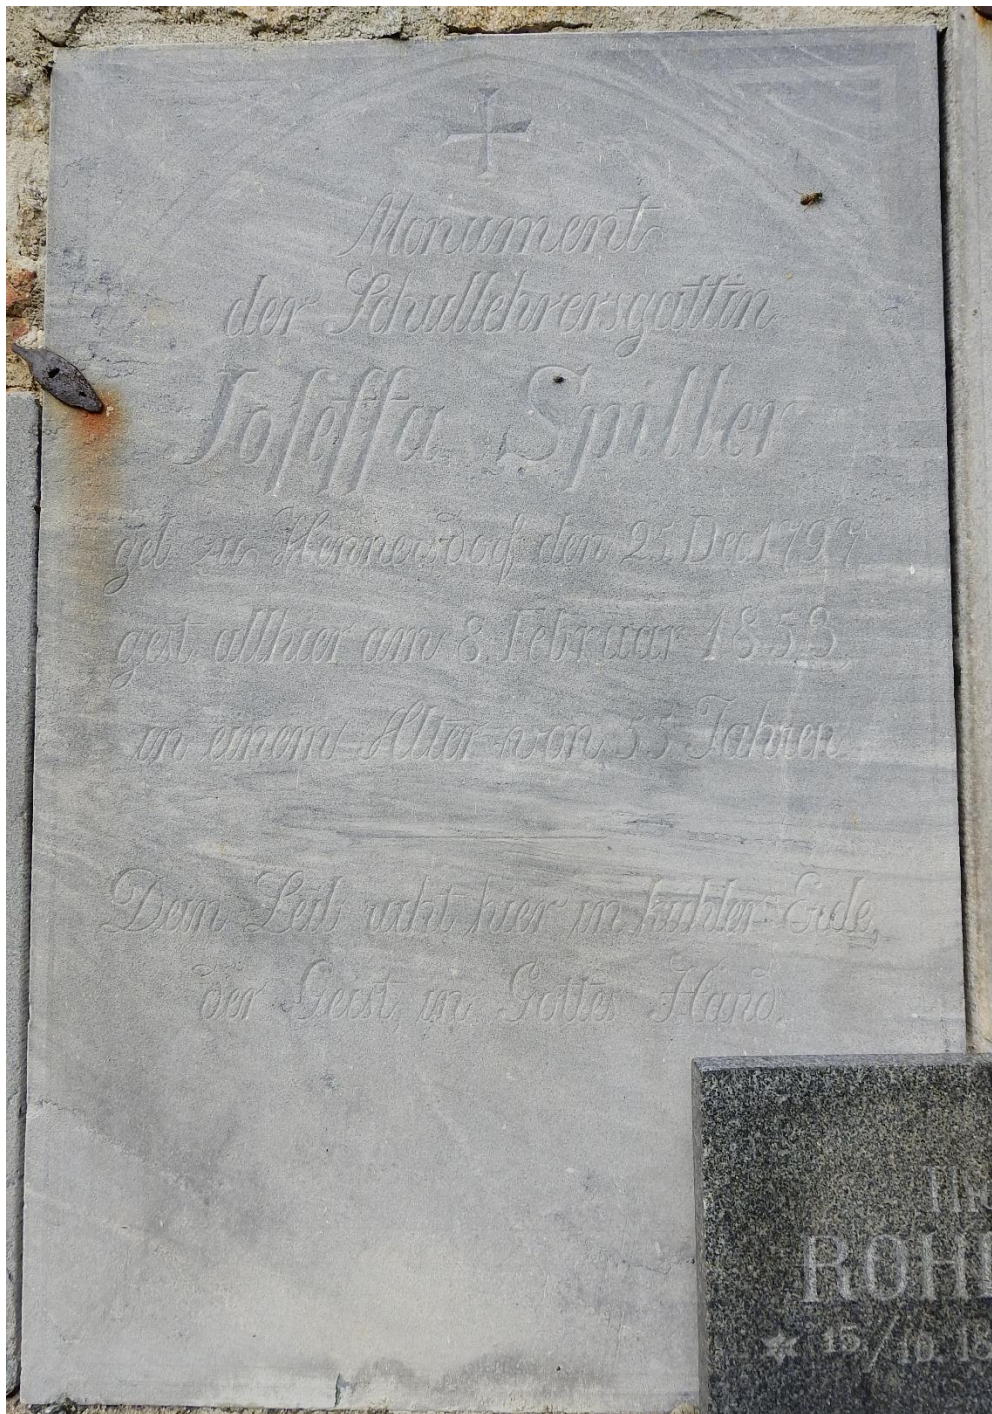 Monument
der Schullehrersgattin
Joseffa Spiller
geb zu Hennersdorf den 25 Dec. 1797
gest. allhier am 8. Februar 1853.
in einem Alter von 55 Jahren
Dein Leib ruht hier in kühler Erde,
der Geist, in Gottes Hand.
ROH
* 15/10. 18